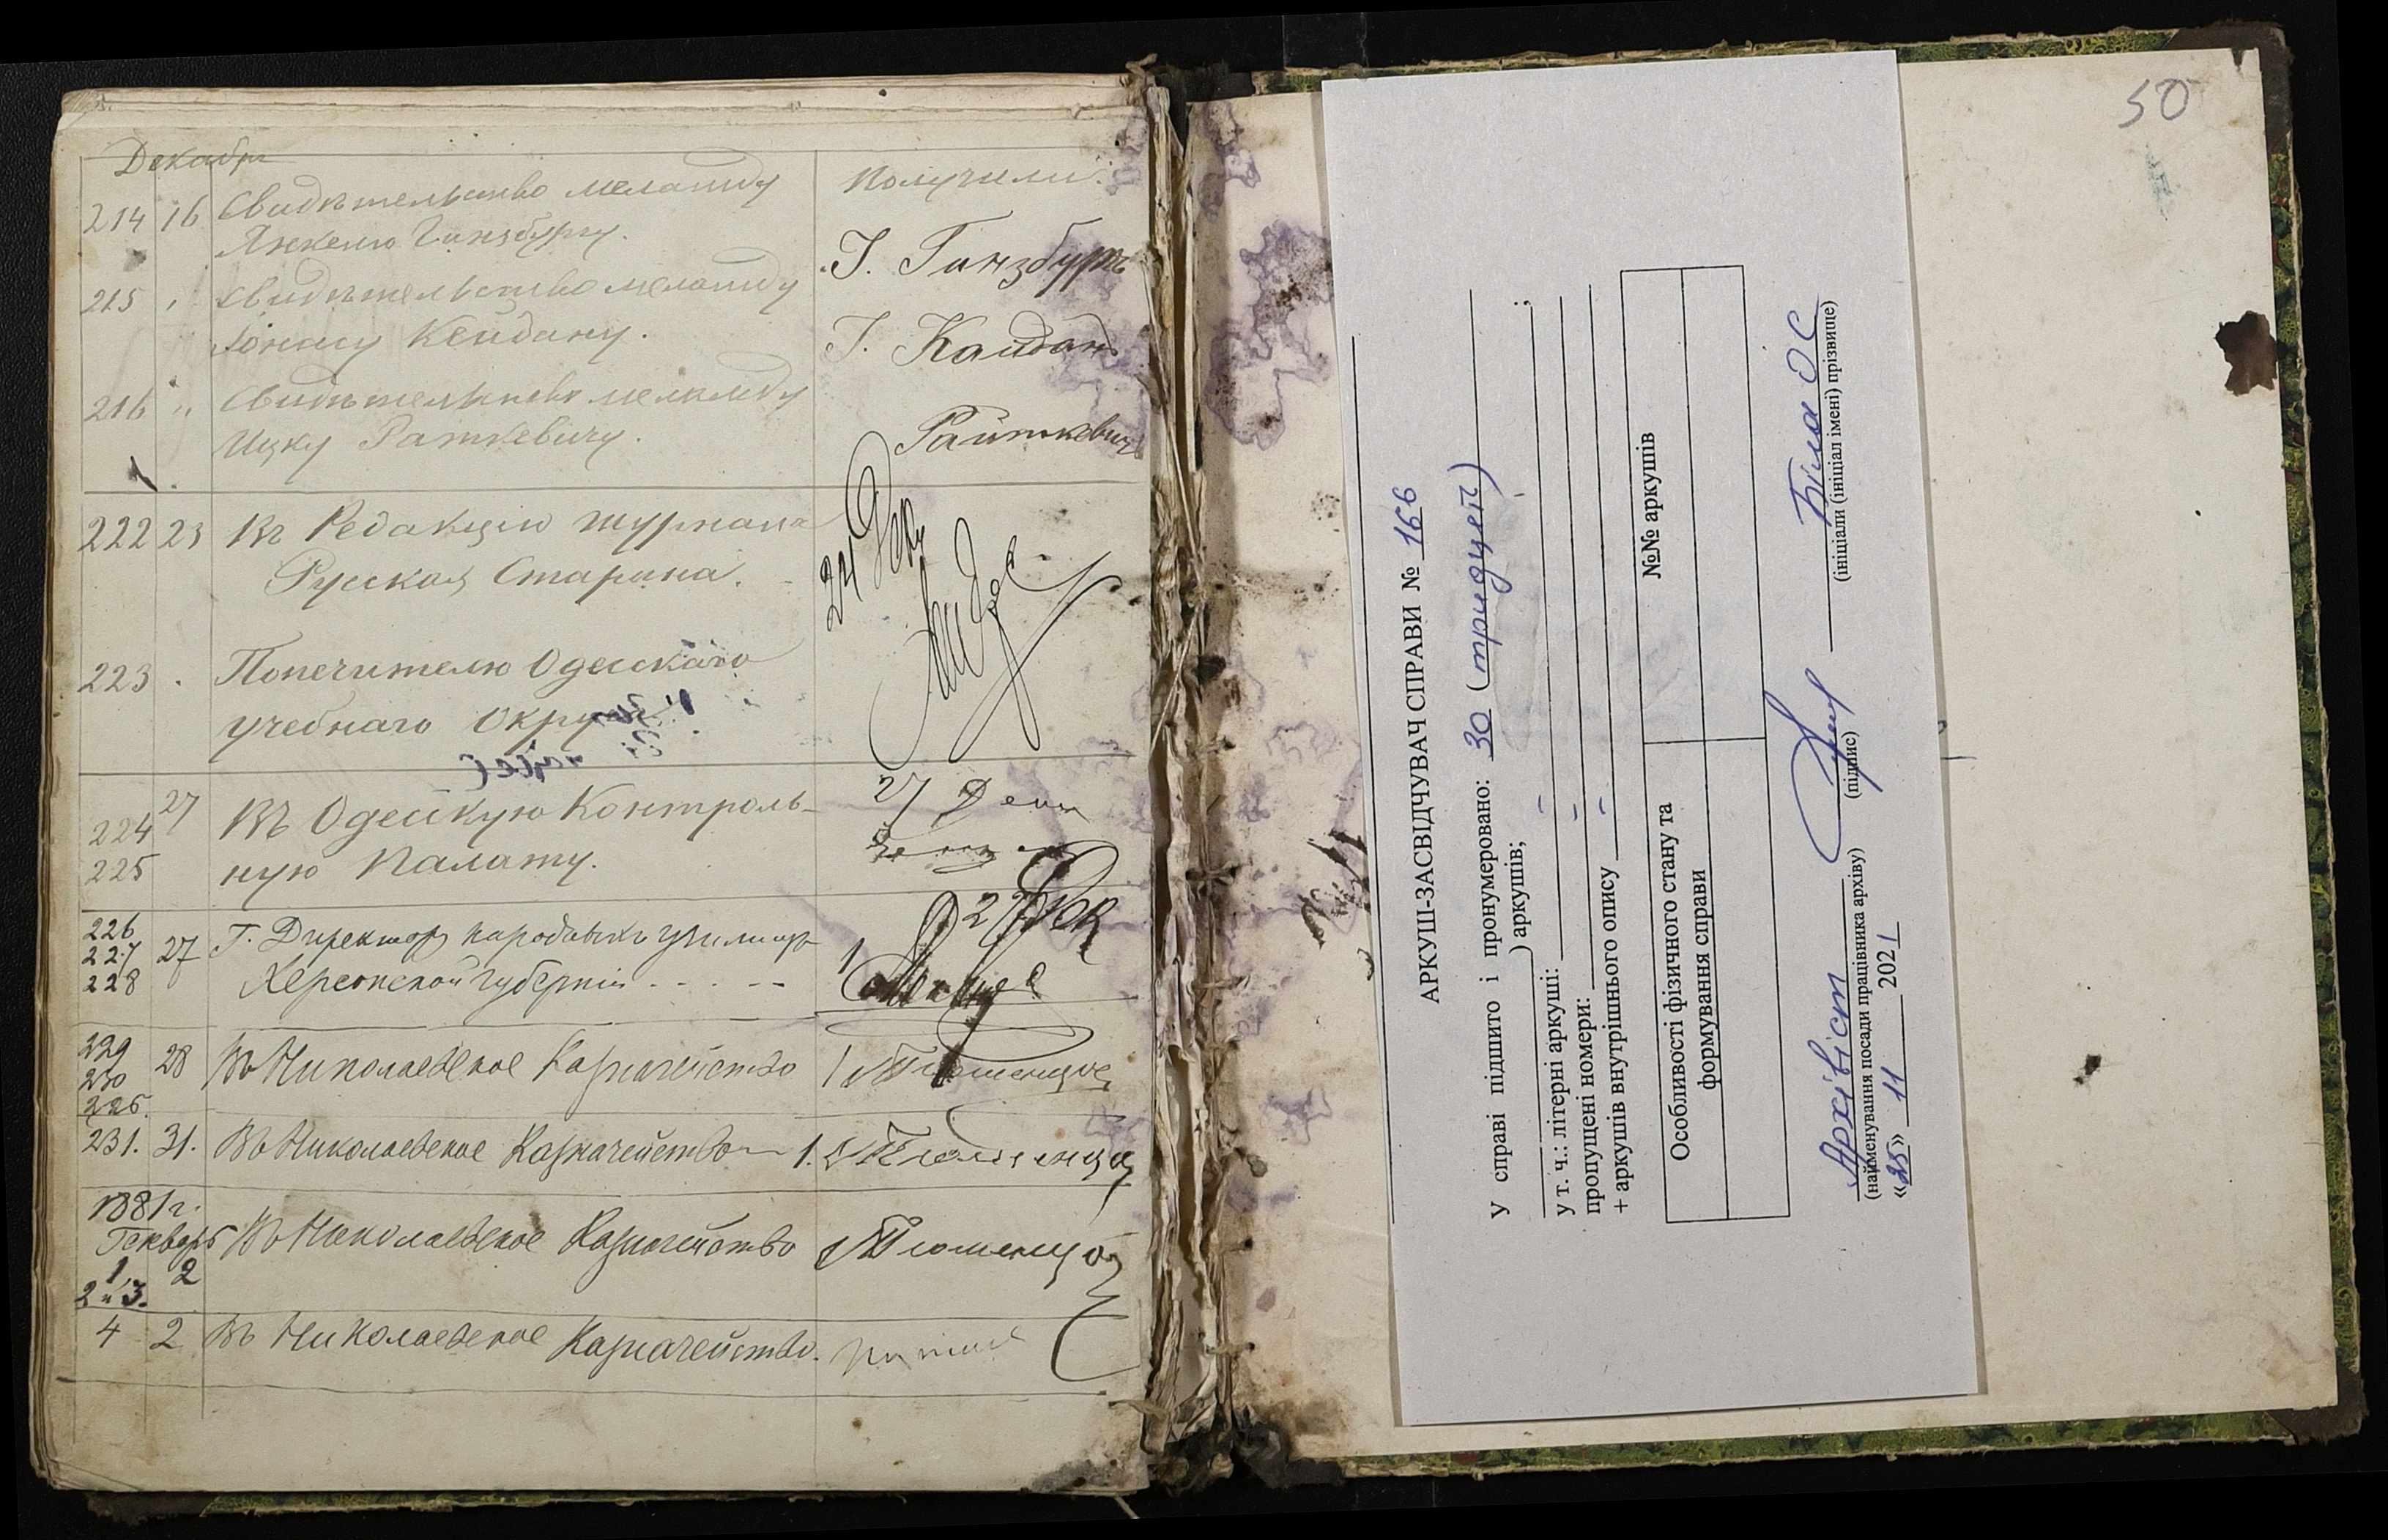 Декабрь
Получили:
214 16 Свидѣтельство меламду
Янкелю Гинзбургу.
І. Гинзбургъ
215 " Свидѣтельство меламду
Іонасу Кейдану.
І. Кайданъ
216 " Свидѣтельство меламду
Ицку Раткевичу.
Райткевич
222 23 Въ Редакцію журнала
Русская Старина.
24 Дек
223 . Попечителю Одесскаго
учебнаго Округа.
27
224 Въ Одесскую Контроль-
225 ную Палату.
27 Дек
226
227 27 Г. Директору народныхъ училищъ
228 Херсонской губерніи - - - -
27 Дек
229
230 28 Въ Николаевское Казначейство
226.
231. 31. Въ Николаевское Казначейство 1.
1881 г.
Генварь Въ Николаевское Казначейство
1, 2
2 и 3.
4 2 Въ Николаевское Казначейство.
50
АРКУШ-ЗАСВІДЧУВАЧ СПРАВИ № 166
У справі підшито і пронумеровано: 30 (тридцять)
) аркушів;
у т. ч.: літерні аркуші: - ;
пропущені номери: -
+ аркушів внутрішнього опису -
Особливості фізичного стану та
формування справи
№№ аркушів
Архівіст Біла О С
(найменування посади працівника архіву) (підпис) (ініціали (ініціал імені) прізвище)
«25» 11 2021